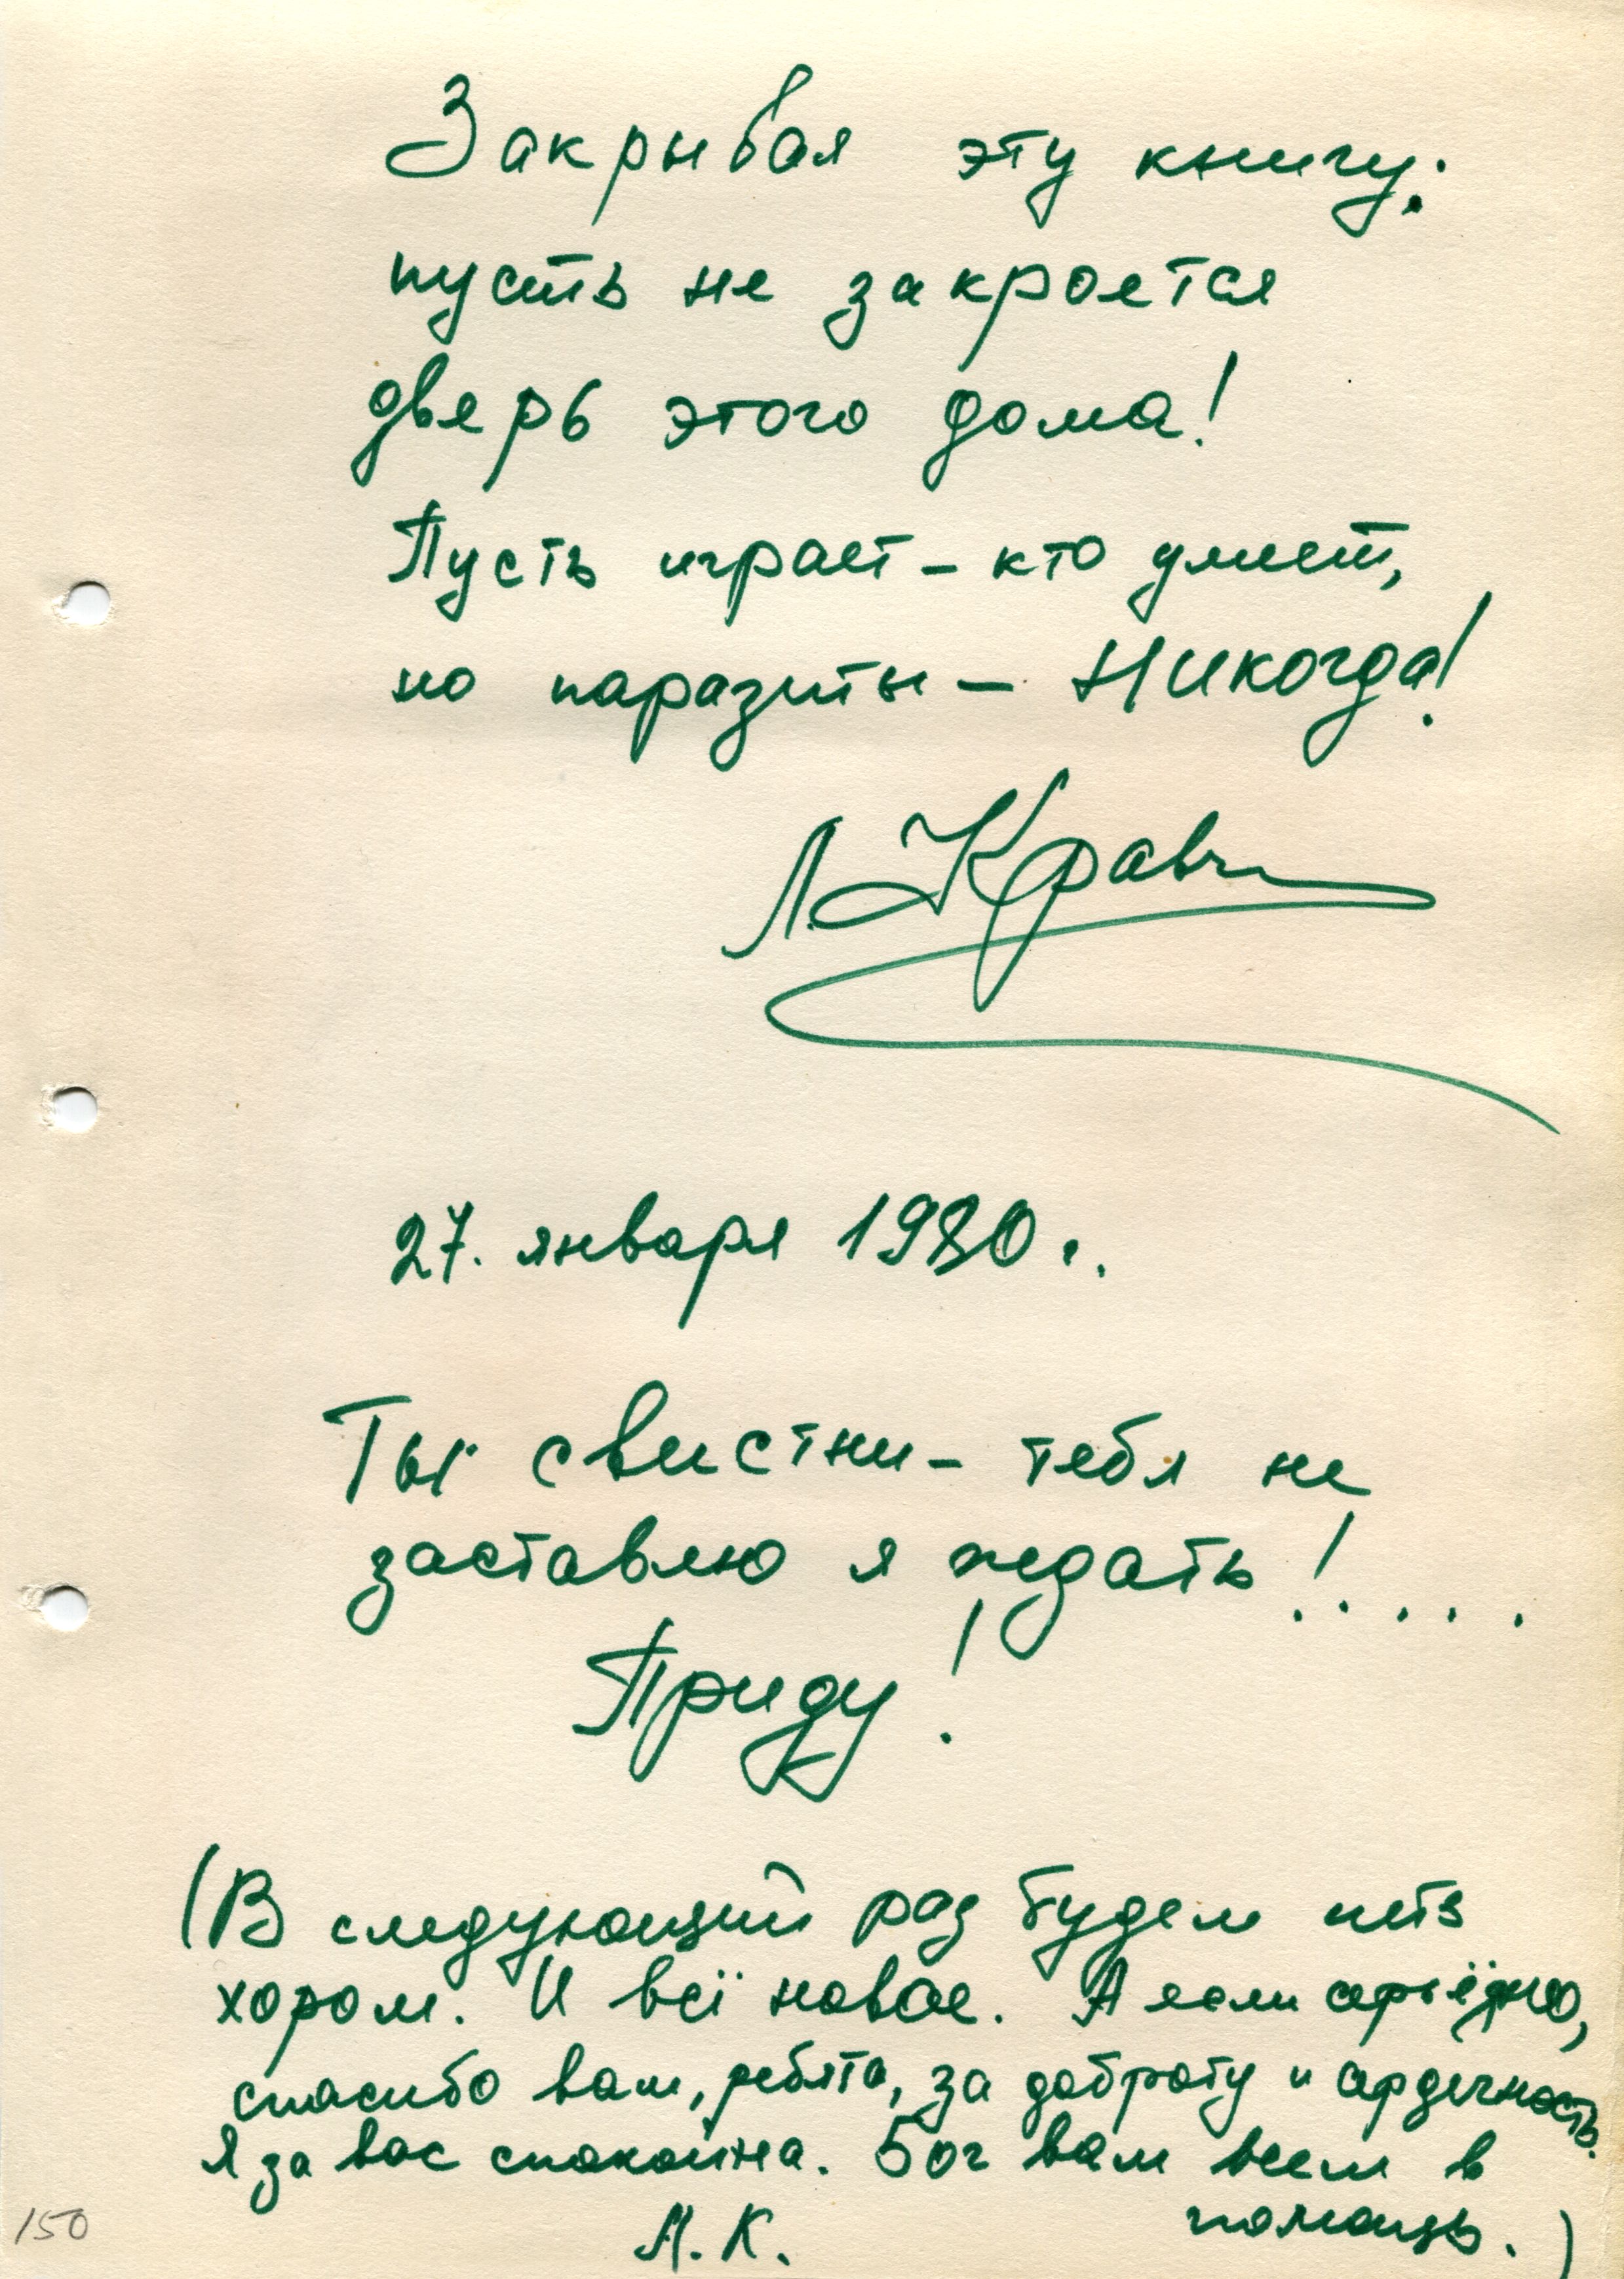 Закрывая эту книгу:
пусть не закроется
дверь этого дома!
Пусть играет – кто умеет,
но паразиты – НИКОГДА!
Л. Кравч
27. января 1980 г.
Ты свистни – тебя не
заставлю я ждать!.....
Приду!
(В следующий раз будем петь
хором. И всё новое. А если серьёзно,
спасибо вам, ребята, за доброту и сердечность.
Я за вас спокойна. Бог вам всем в
помощь.)
Л. К.
150